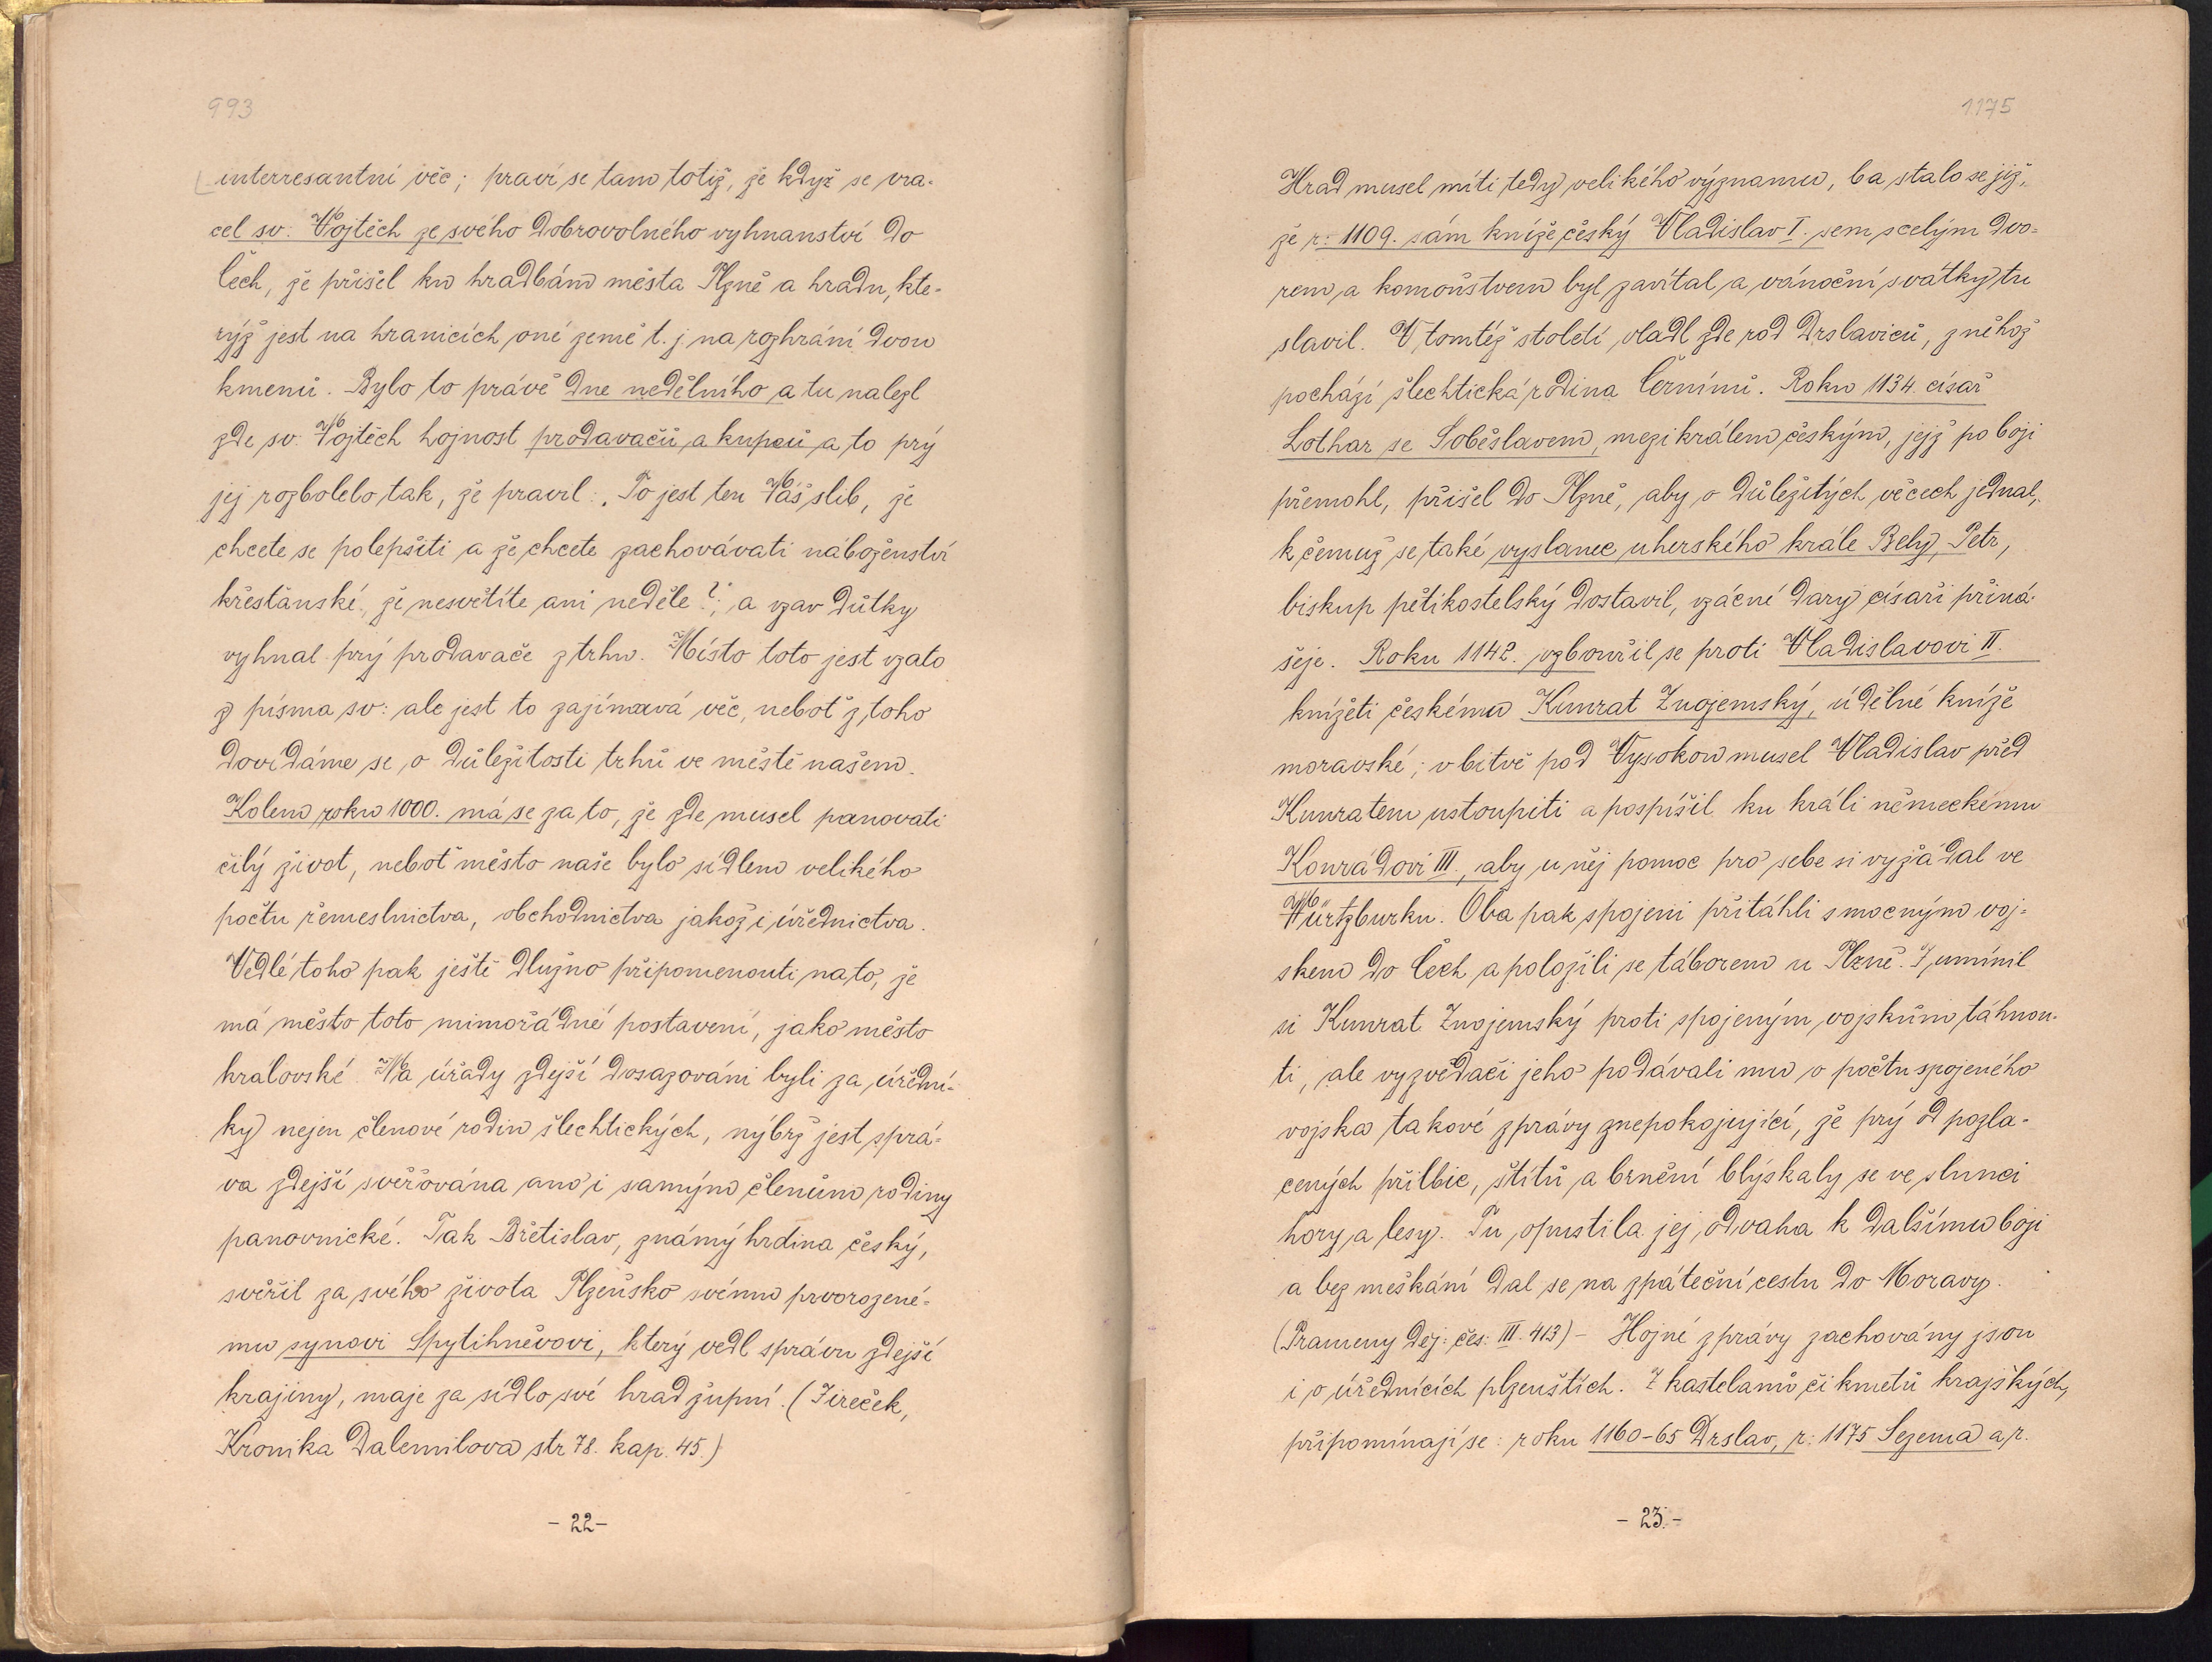 993
interresantní věc; praví se tam totiž, že když se vra-
cel sv. Vojtěch ze svého dobrovolného vyhnanství do
Čech, že přišel ku hradbám města Plzně a hradu, kte-
rýž jest na hranicích oné země t. j. na rozhraní dvou
kmenů. Bylo to právě dne nedělního a tu nalezl
zde sv. Vojtěch hojnost prodavačů a kupců a to prý
jej rozbolelo tak, že pravil: „To jest ten Váš slib, že
chcete se polepšiti a že chcete zachovávati náboženství
křesťanské, že nesvětíte ani neděle?", a vzav důtky
vyhnal prý prodavače z trhu. Místo toto jest vzato
z písma sv: ale jest to zajímavá věc, neboť z toho
dovídáme se o důležitosti trhů ve městě našem.
Kolem roku 1000. má se za to, že zde musel panovati
čilý život, neboť město naše bylo sídlem velikého
počtu řemeslnictva, obchodnictva jakož i úřednictva.
Vedlé toho pak ještě dlužno připomenouti na to, že
má město toto mimořádné postavení, jako město
královské. Na úřady zdejší dosazováni byli za úřední-
ky nejen členové rodin šlechtických, nýbrž jest sprá-
va zdejší svěřována ano i samým členům rodiny
panovnické. Tak Břetislav, známý hrdina český,
svěřil za svého života Plzeňsko svému prvorozené-
mu synovi Spytihněvovi, který vedl správu zdejší
krajiny, maje za sídlo své hrad župní. (Jireček,
Kronika Dalemilova str 78. kap. 45.)
- 22 -
1175
Hrad musel míti tedy velikého významu, ba stalo se již,
že r: 1109. sám kníže český Vladislav I. sem s celým dvo-
rem a komonstvem byl zavítal a vánoční svátky tu
slavil. V tomtéž století vládl zde rod Drslaviců, z něhož
pochází šlechtická rodina Černínů. Roku 1134. císař
Lothar se Soběslavem, mezi králem českým, jejž po boji
přemohl, přišel do Plzně, aby o důležitých věcech jednal,
k čemuž se také vyslanec uherského krále Bely, Petr,
biskup pětikostelský dostavil, vzácné dary císaři přiná-
šeje. Roku 1142. vzbouřil se proti Vladislavovi II.
knížeti českému Kunrat Znojemský, údělné kníže
moravské; v bitvě pod Vysokou musel Vladislav před
Kunratem ustoupiti a pospíšil ku králi německému
Konrádovi III., aby u něj pomoc pro sebe si vyžádal ve
Würtzburku. Oba pak spojeni přitáhli s mocným voj-
skem do Čech a položili se táborem u Plzně. I umínil
si Kunrat Znojemský proti spojeným vojskům táhnou-
ti, ale vyzvědači jeho podávali mu o počtu spojeného
vojska takové zprávy znepokojující, že prý od pozla-
cených přílbic, štítů a brnění blýskaly se ve slunci
hory a lesy. Tu opustila jej odvaha k dalšímu boji
a bez meškání dal se na zpáteční cestu do Moravy.
(Prameny dej: čes: III. 413) - Hojné zprávy zachovány jsou
i o úřednících plzeňštích. Z kastelanů či kmetů krajských,
připomínají se: roku 1160-65 Drslav, r: 1175 Sezema a r.
- 23. -